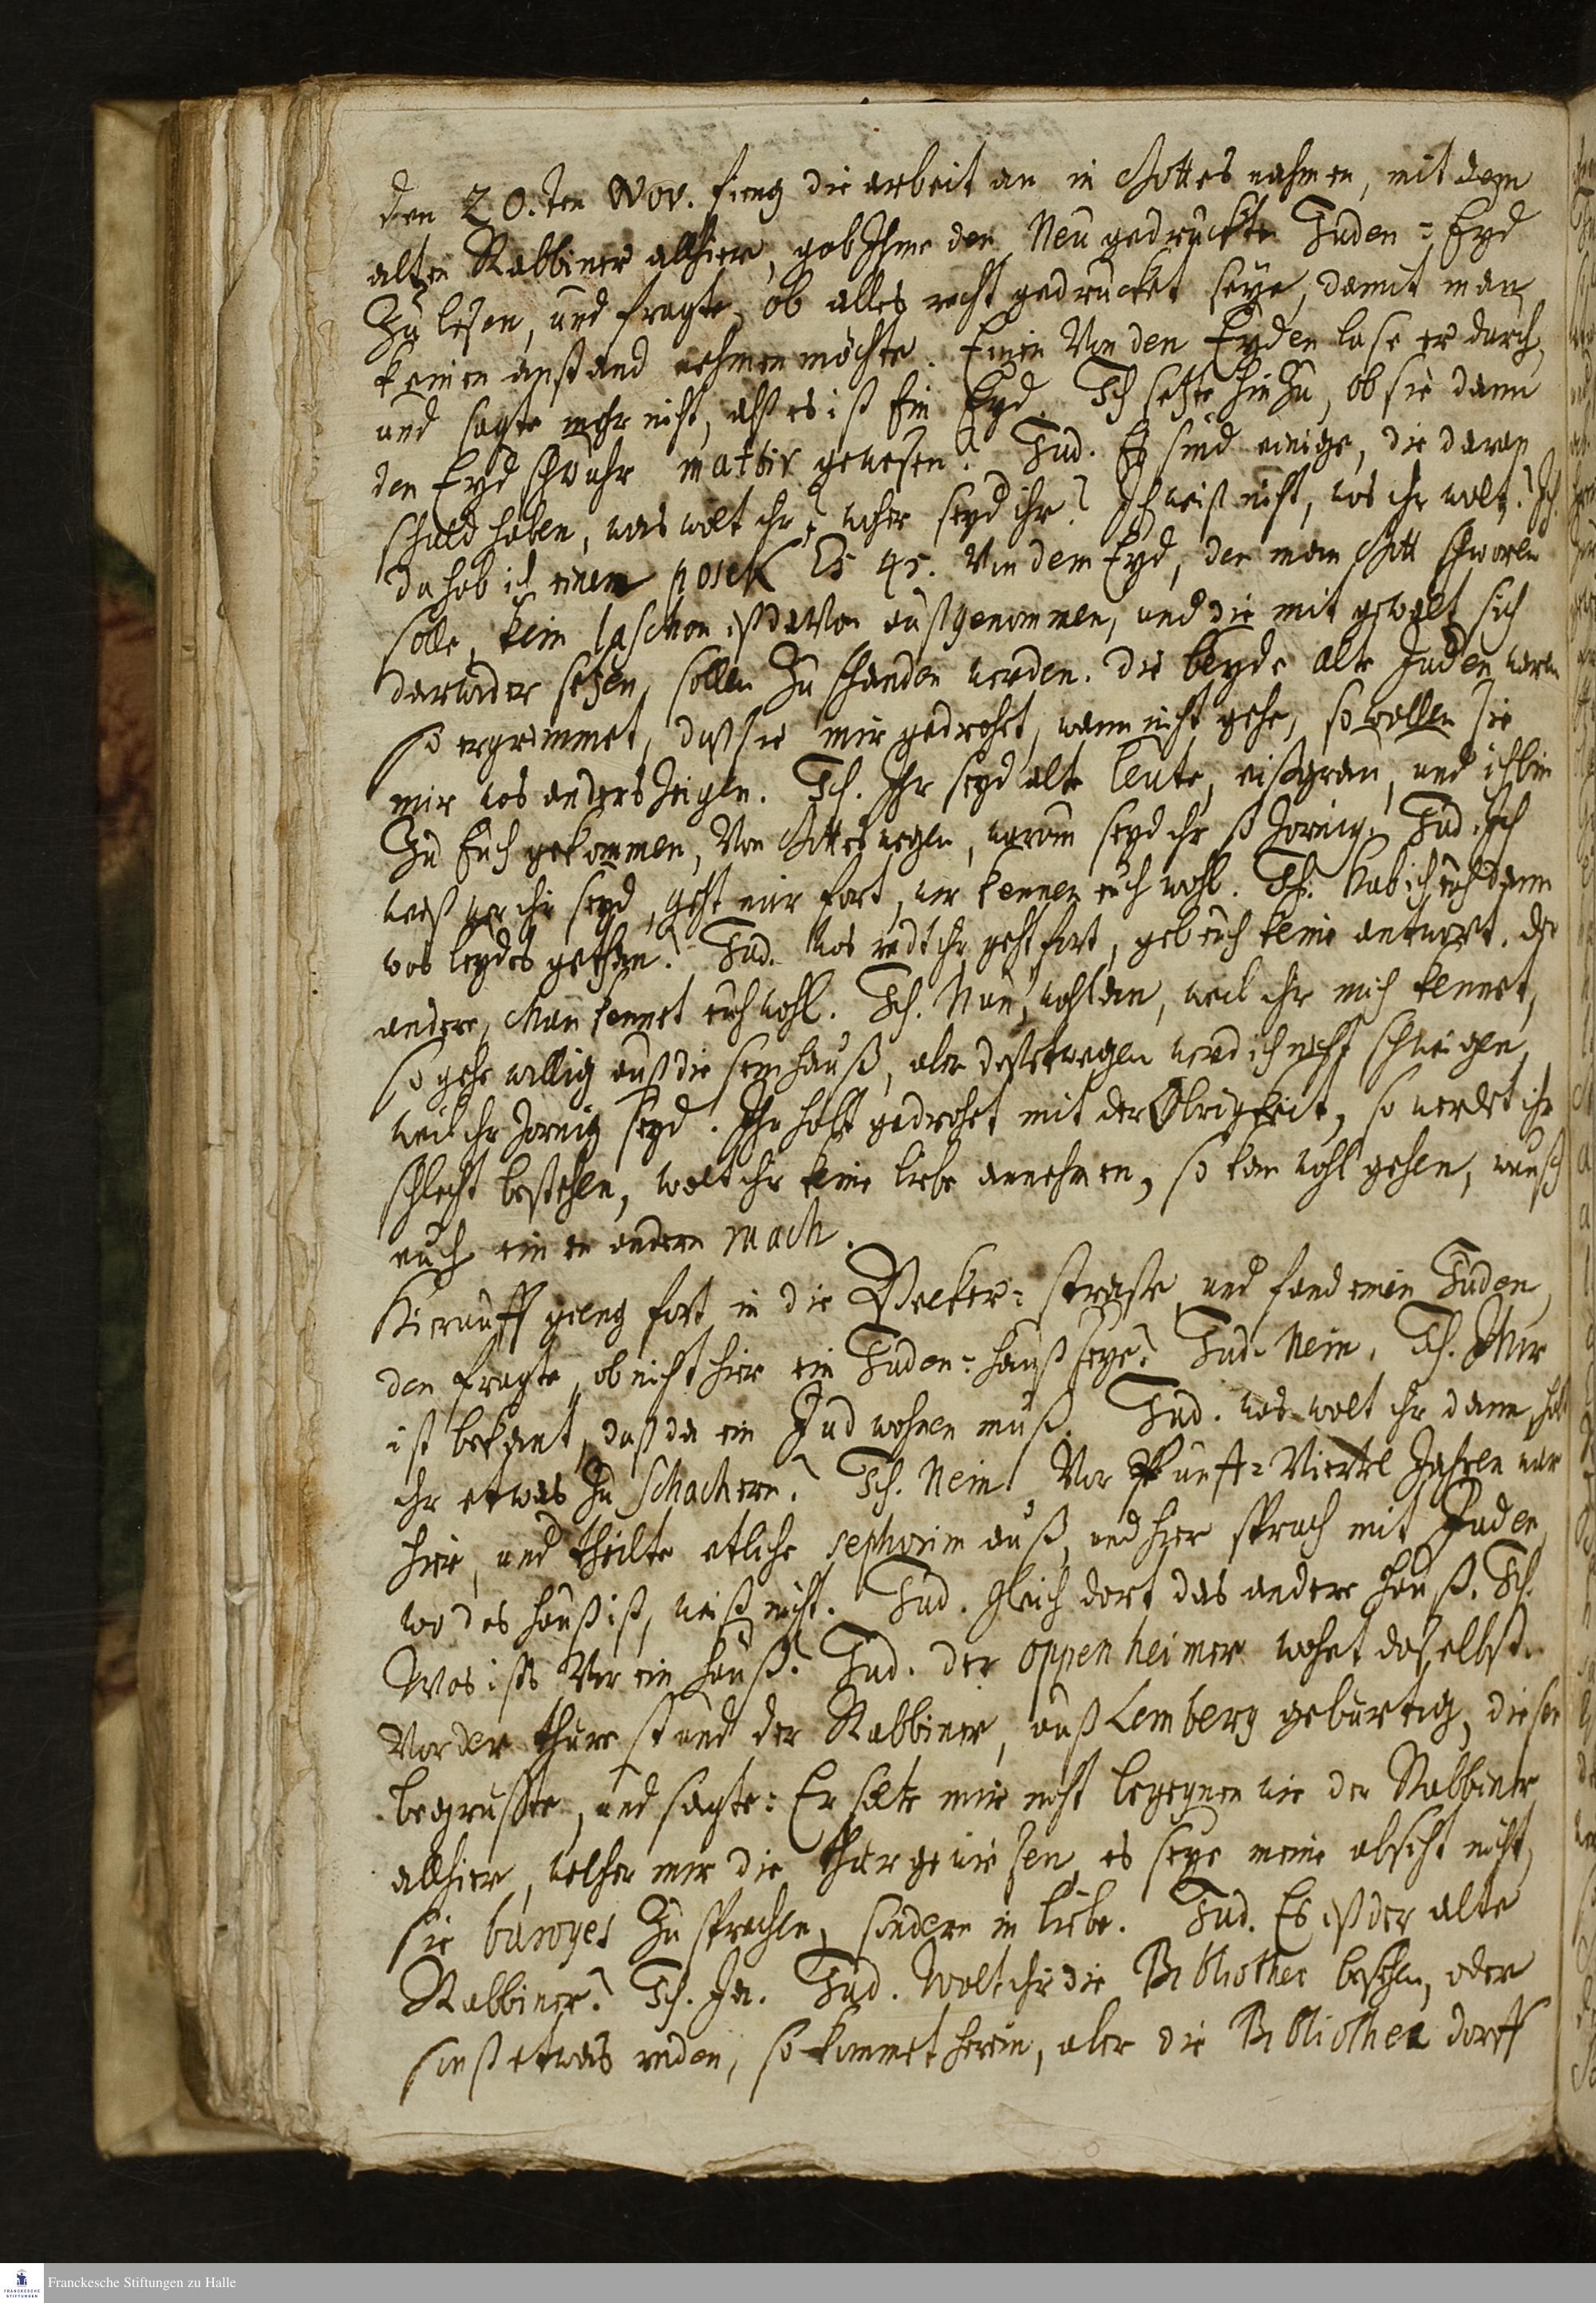 den 20.ten Nov. fieng die arbeit an in Gottes nahmen, mit dem
alten Rabbiner allhier, gab Ihme den Neu gedruckte Juden=Eyd
Zu lesen, und fragte, ob alles recht gedrucket seye, damit man
keinen anstand nehmen möchte. Einen Von den Eyden lase er durch,
und sagte mehr nicht, alß es ist Ein Eyd. Ich setzte hinzu, ob sie dann
den Eyd schwuhr mattir gewesen? Jud. Es sind einige, die daran
schuld haben, was wolt ihr? woher seyd ihr? Ich weiß nicht, was ihr wolt? Ich.
da hab ich einen posek Es 45. Von dem Eyd, den man Gott schweren
solle, kein laschon ist davon außgenommen, und die mit gewalt sich
darwider setzen, sollen Zu schanden werden. die beyde alte Juden waren
so ergrimmet, daß sie mir gedrohet, wann nicht gehe, so wollen sie
mir was anders zeigen. Ich. Ihr seyd alte leute, eißgrau, und ich bin
Zu Euch gekommen, Von Gottes wegen, warum seyd ihr so zornig. Jud. Ich
weiß wer ihr seyd, geht nur fort, wir kennen euch wohl. Ich. Hab ich euch dann
was leydes gethan? Jud. was redt ihr, geht fort, geb euch keine antwort. der
andere, Man kennet euch wohl. Ich. Nun, wohl dan, weil ihr mich kennet,
so gehe willig auß diesem hauß, aber deßetwegen werd ich nicht schweigen,
weil ihr zornig seyd. Ihr habt gedrohet mit der Obrigkeit, so werdet ihr
schlecht bestehen, wolt ihr keine liebe annehmen, so kan wohl gehen, wunsch
euch einen andern mach.
Hierauff gieng fort in die Becker=strasse, und fand einen Juden
den fragte, ob nicht hier ein Juden=hauß seye? Jud. Nein. Ich. Mir
ist bekant, daß da ein Jud wohnen muß. Jud. was wolt ihr dann, habt
ihr etwas zu schachern? Ich. Nein. Vor Funff=Viertel Jahren war
hier, und theilte etliche sephorim auß, und hier sprach mit Juden,
wo das hauß ist, weiß nicht. Jud. Gleich dort das andere hauß. Ich.
Was ists Vor ein hauß? Jud. der Oppenheimer wohnt daselbst.
Vor der thure stund der Rabbiner, auß Lemberg geburtig, diesen
begrußte, und sagte: Er solte mir nicht begegnen wie der Rabbiner
allhier, welcher mir die thur gewiesen, es seye meine absicht nicht,
sie bauroges Zu sprechen, sondern in liebe. Jud. Es ist der alte
Rabbiner? Ich. Ja. Jud. Wolt ihr die Bibliothec besehen, oder
sonst etwas reden, so kommet herein, aber die Bibliothec dorff
Franckesche Stiftungen zu Halle